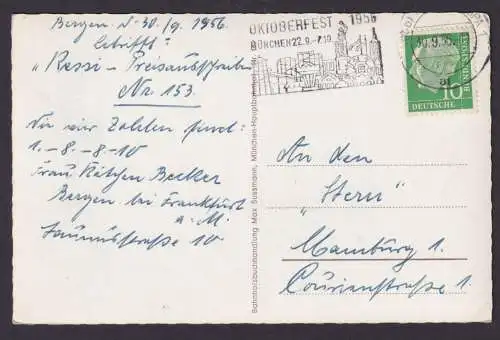 Bergen d. 30/9. 1956
betrifft:
"Kessi - Preisausschreiben
Nr. 153.
Die vier Zahlen sind:
1.-8.-8-10
Frau Käthchen Becker
Bergen bei Frankfurt
a. M.
Taunusstraße 10
OKTOBERFEST 1956
MÜNCHEN 22.9.-7.10
10
DEUTSCHE
BUNDESPOST
Bahnhofsbuchhandlung Max Sussmann, München-Hauptbahnhof
An den
"Stern"
Hamburg 1.
Curienstraße 1.